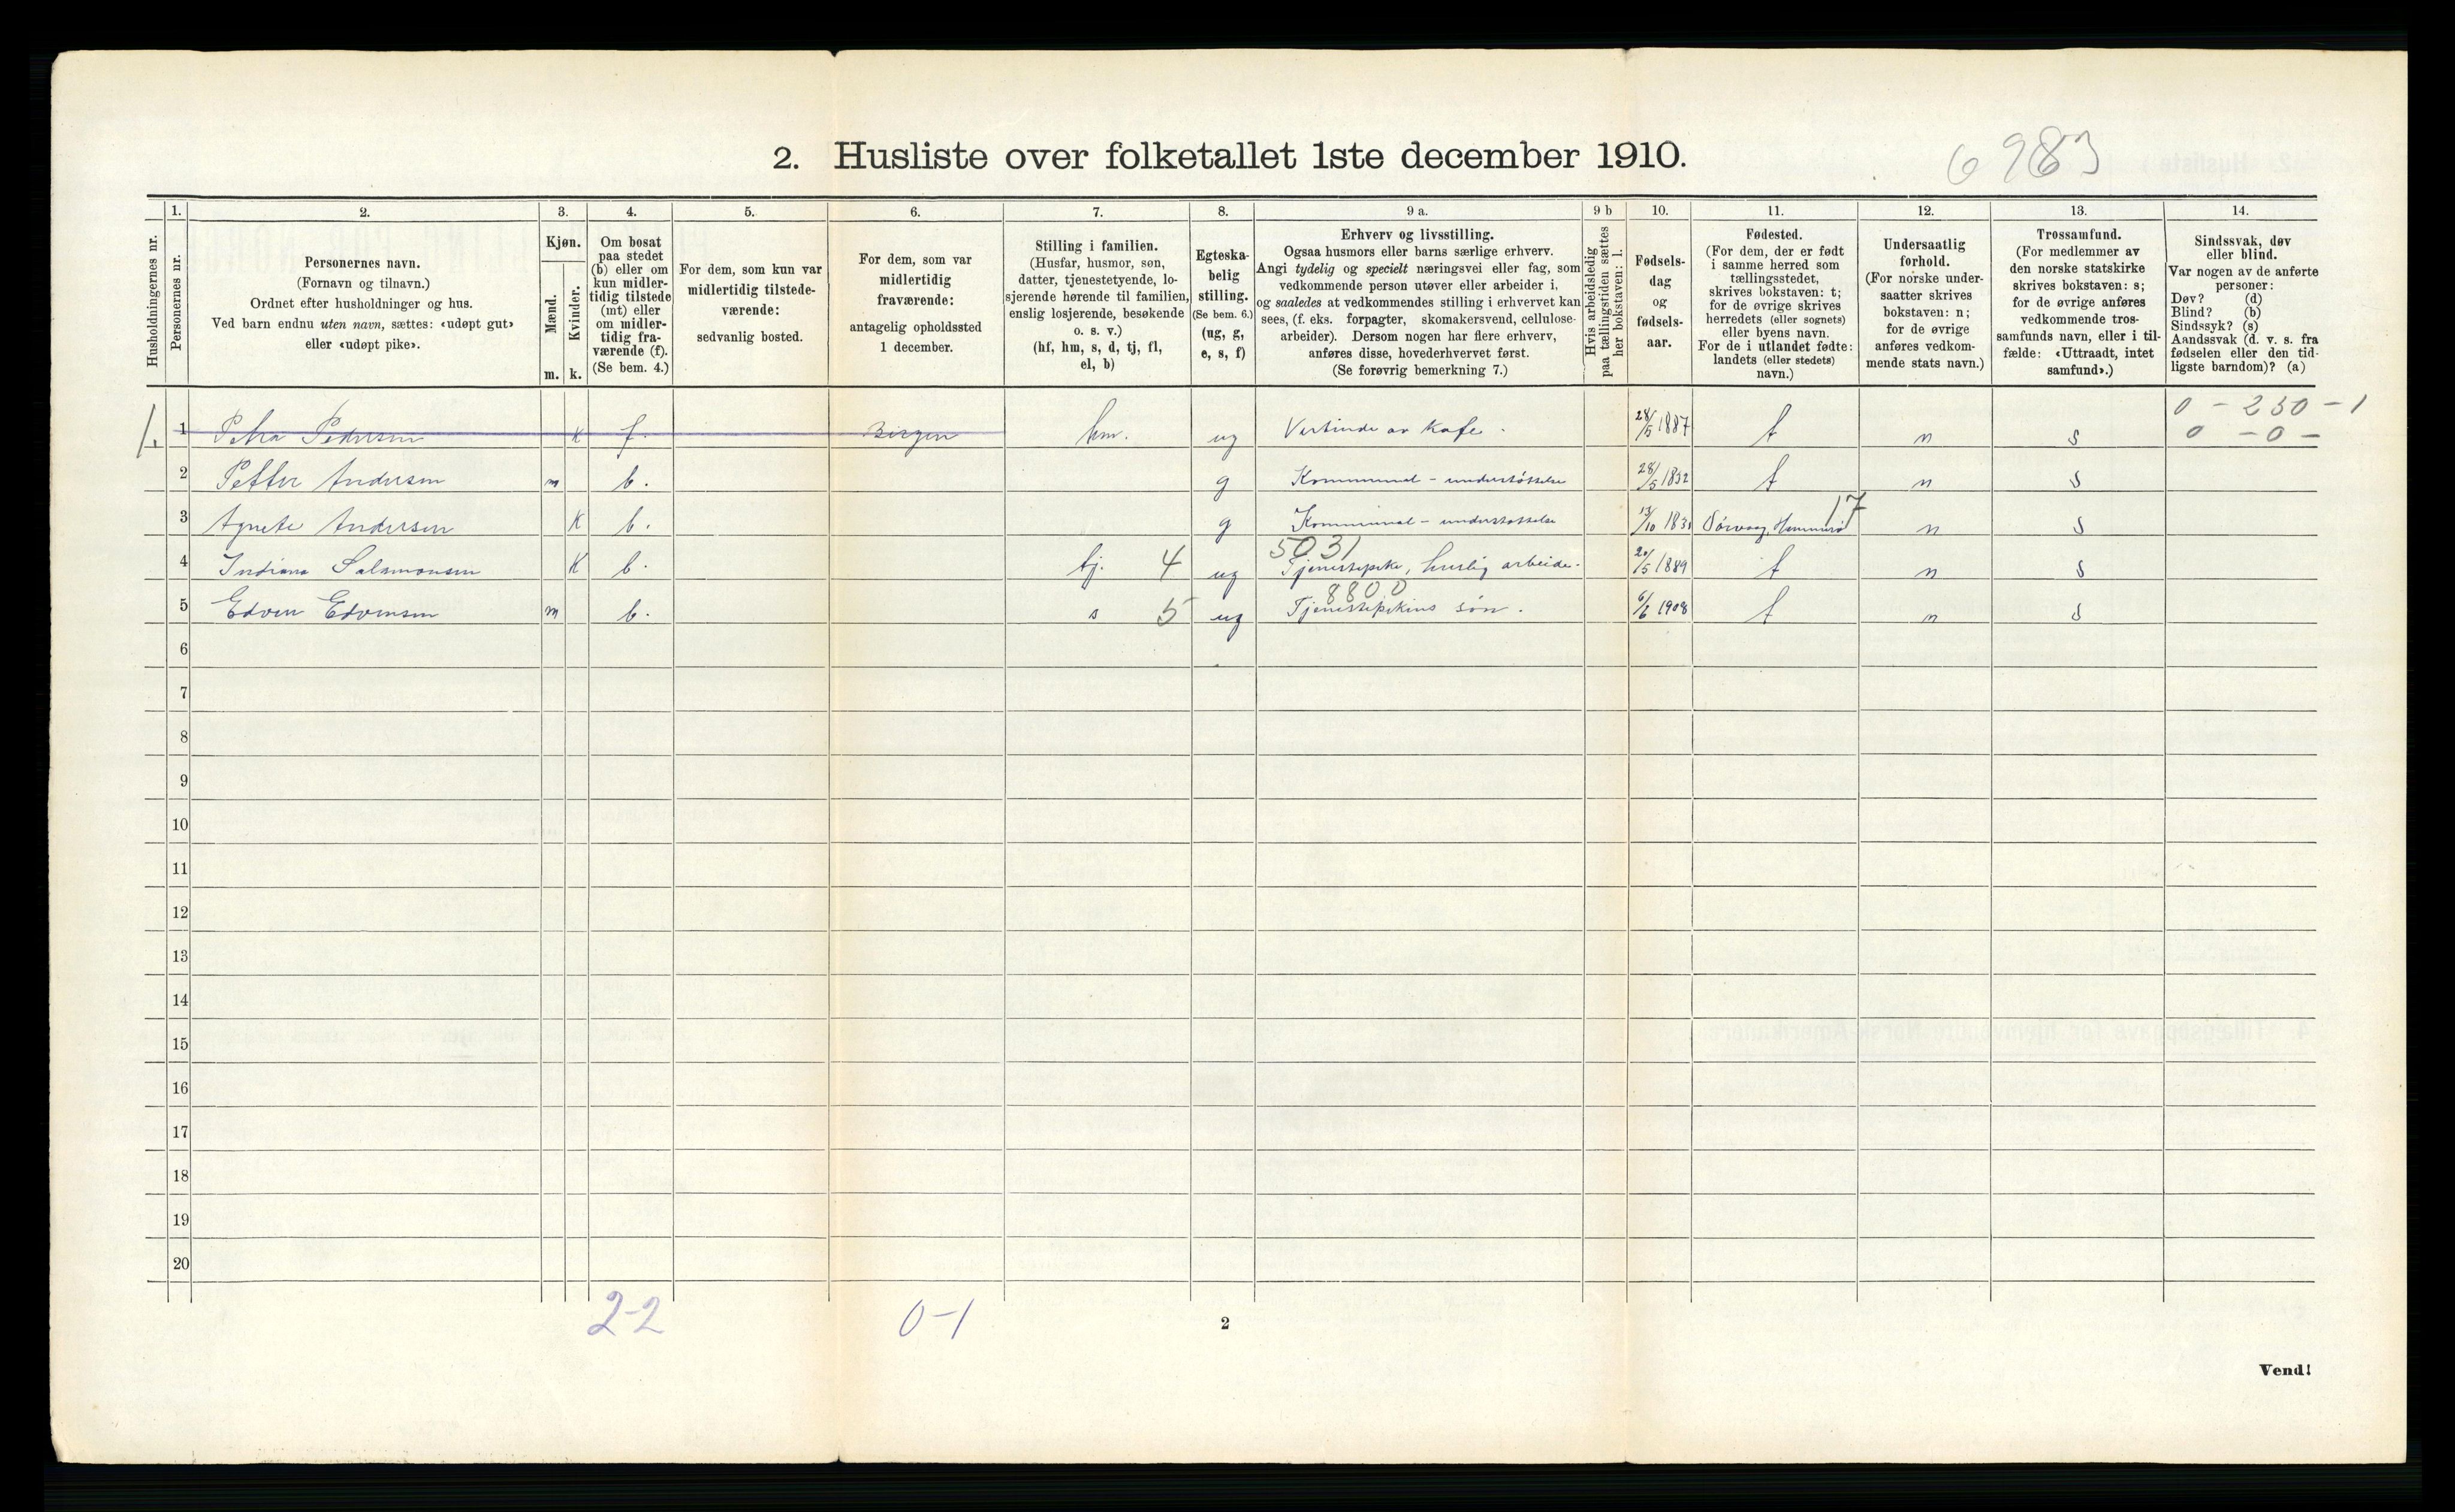 2. Husliste over folketallet 1ste december 1910.
6983
1. 2. 3. 4. 5. 6. 7. 8. 9 a. 9 b 10. 11. 12. 13. 14.
Husholdningernes nr.
Personernes nr.
Personernes navn.
(Fornavn og tilnavn.)
Ordnet efter husholdninger og hus.
Ved barn endnu uten navn, sættes: «udøpt gut»
eller «udøpt pike».
Kjøn.
Mænd.
Kvinder.
m. k.
Om bosat
paa stedet
(b) eller om
kun midler-
tidig tilstede
(mt) eller
om midler-
tidig fra-
værende (f).
(Se bem. 4.)
For dem, som kun var
midlertidig tilstede-
værende:
sedvanlig bosted.
For dem, som var
midlertidig
fraværende:
antagelig opholdssted
1 december.
Stilling i familien.
(Husfar, husmor, søn,
datter, tjenestetyende, lo-
sjerende hørende til familien,
enslig losjerende, besøkende
o. s. v.)
(hf, hm, s, d, tj, fl,
el, b)
Egteska-
belig
stilling.
(Se bem. 6.)
(ug, g,
e, s, f)
Erhverv og livsstilling.
Ogsaa husmors eller barns særlige erhverv.
Angi tydelig og specielt næringsvei eller fag, som
vedkommende person utøver eller arbeider i,
og saaledes at vedkommendes stilling i erhvervet kan
sees, (f. eks. forpagter, skomakersvend, cellulose-
arbeider). Dersom nogen har flere erhverv,
anføres disse, hovederhvervet først.
(Se forøvrig bemerkning 7.)
Hvis arbeidsledig
paa tællingstiden sættes
her bokstaven: l.
Fødsels-
dag
og
fødsels-
aar.
Fødested.
(For dem, der er født
i samme herred som
tællingsstedet,
skrives bokstaven: t;
for de øvrige skrives
herredets (eller sognets)
eller byens navn.
For de i utlandet fødte:
landets (eller stedets)
navn.)
Undersaatlig
forhold.
(For norske under-
saatter skrives
bokstaven: n;
for de øvrige
anføres vedkom-
mende stats navn.)
Trossamfund.
(For medlemmer av
den norske statskirke
skrives bokstaven: s;
for de øvrige anføres
vedkommende tros-
samfunds navn, eller i til-
fælde: «Uttraadt, intet
samfund».)
Sindssvak, døv
eller blind.
Var nogen av de anførte
personer:
Døv? (d)
Blind? (b)
Sindssyk? (s)
Aandssvak (d. v. s. fra
fødselen eller den tid-
ligste barndom)? (a)
0 - 230 - 1
1 Petra Pedersen k f. Bergen hm. ug Vertinde av Kafe. 28/5 1887 t n s 0 - 0 -
2 Petter Andersen m b. g Kommunal - understøttelse 28/5 1832 t n s
17
3 Agnete Andersen k b. g Kommunal - understøttelse 13/10 183 n s
5031
4 Indiana Salamonsen k b. tj. 4 ug Tjenestepike, huslig arbeide. 20/5 1889 t n s
8800
5 Edvin Edvinsen m b. s 5 ug Tjenestepikens søn. 6/6 1908 t n s
6
7
8
9
10
11
12
13
14
15
16
17
18
19
20
2-2 0-1
2
Vend!